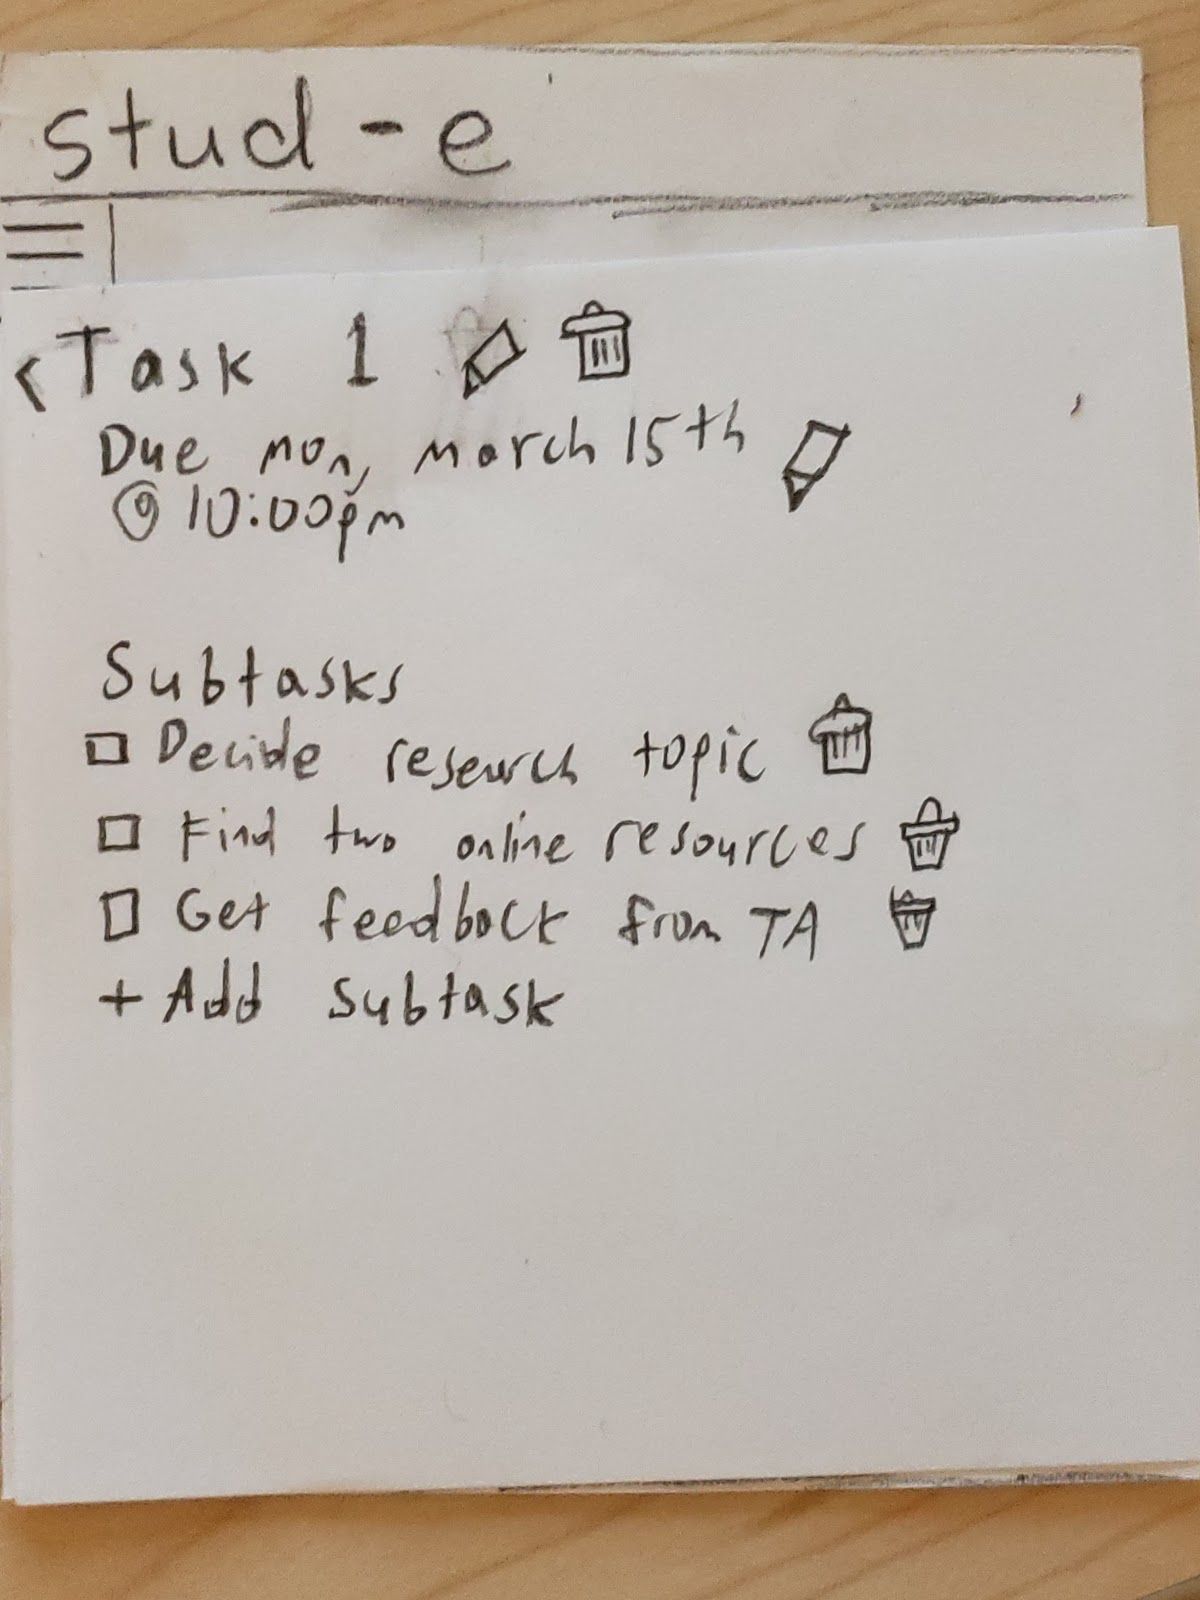 stud-e
<Task 1
Due mon, march 15th
@ 10:00pm
Subtasks
Decide research topic
Find two online resources
Get feedback from TA
+ Add subtask